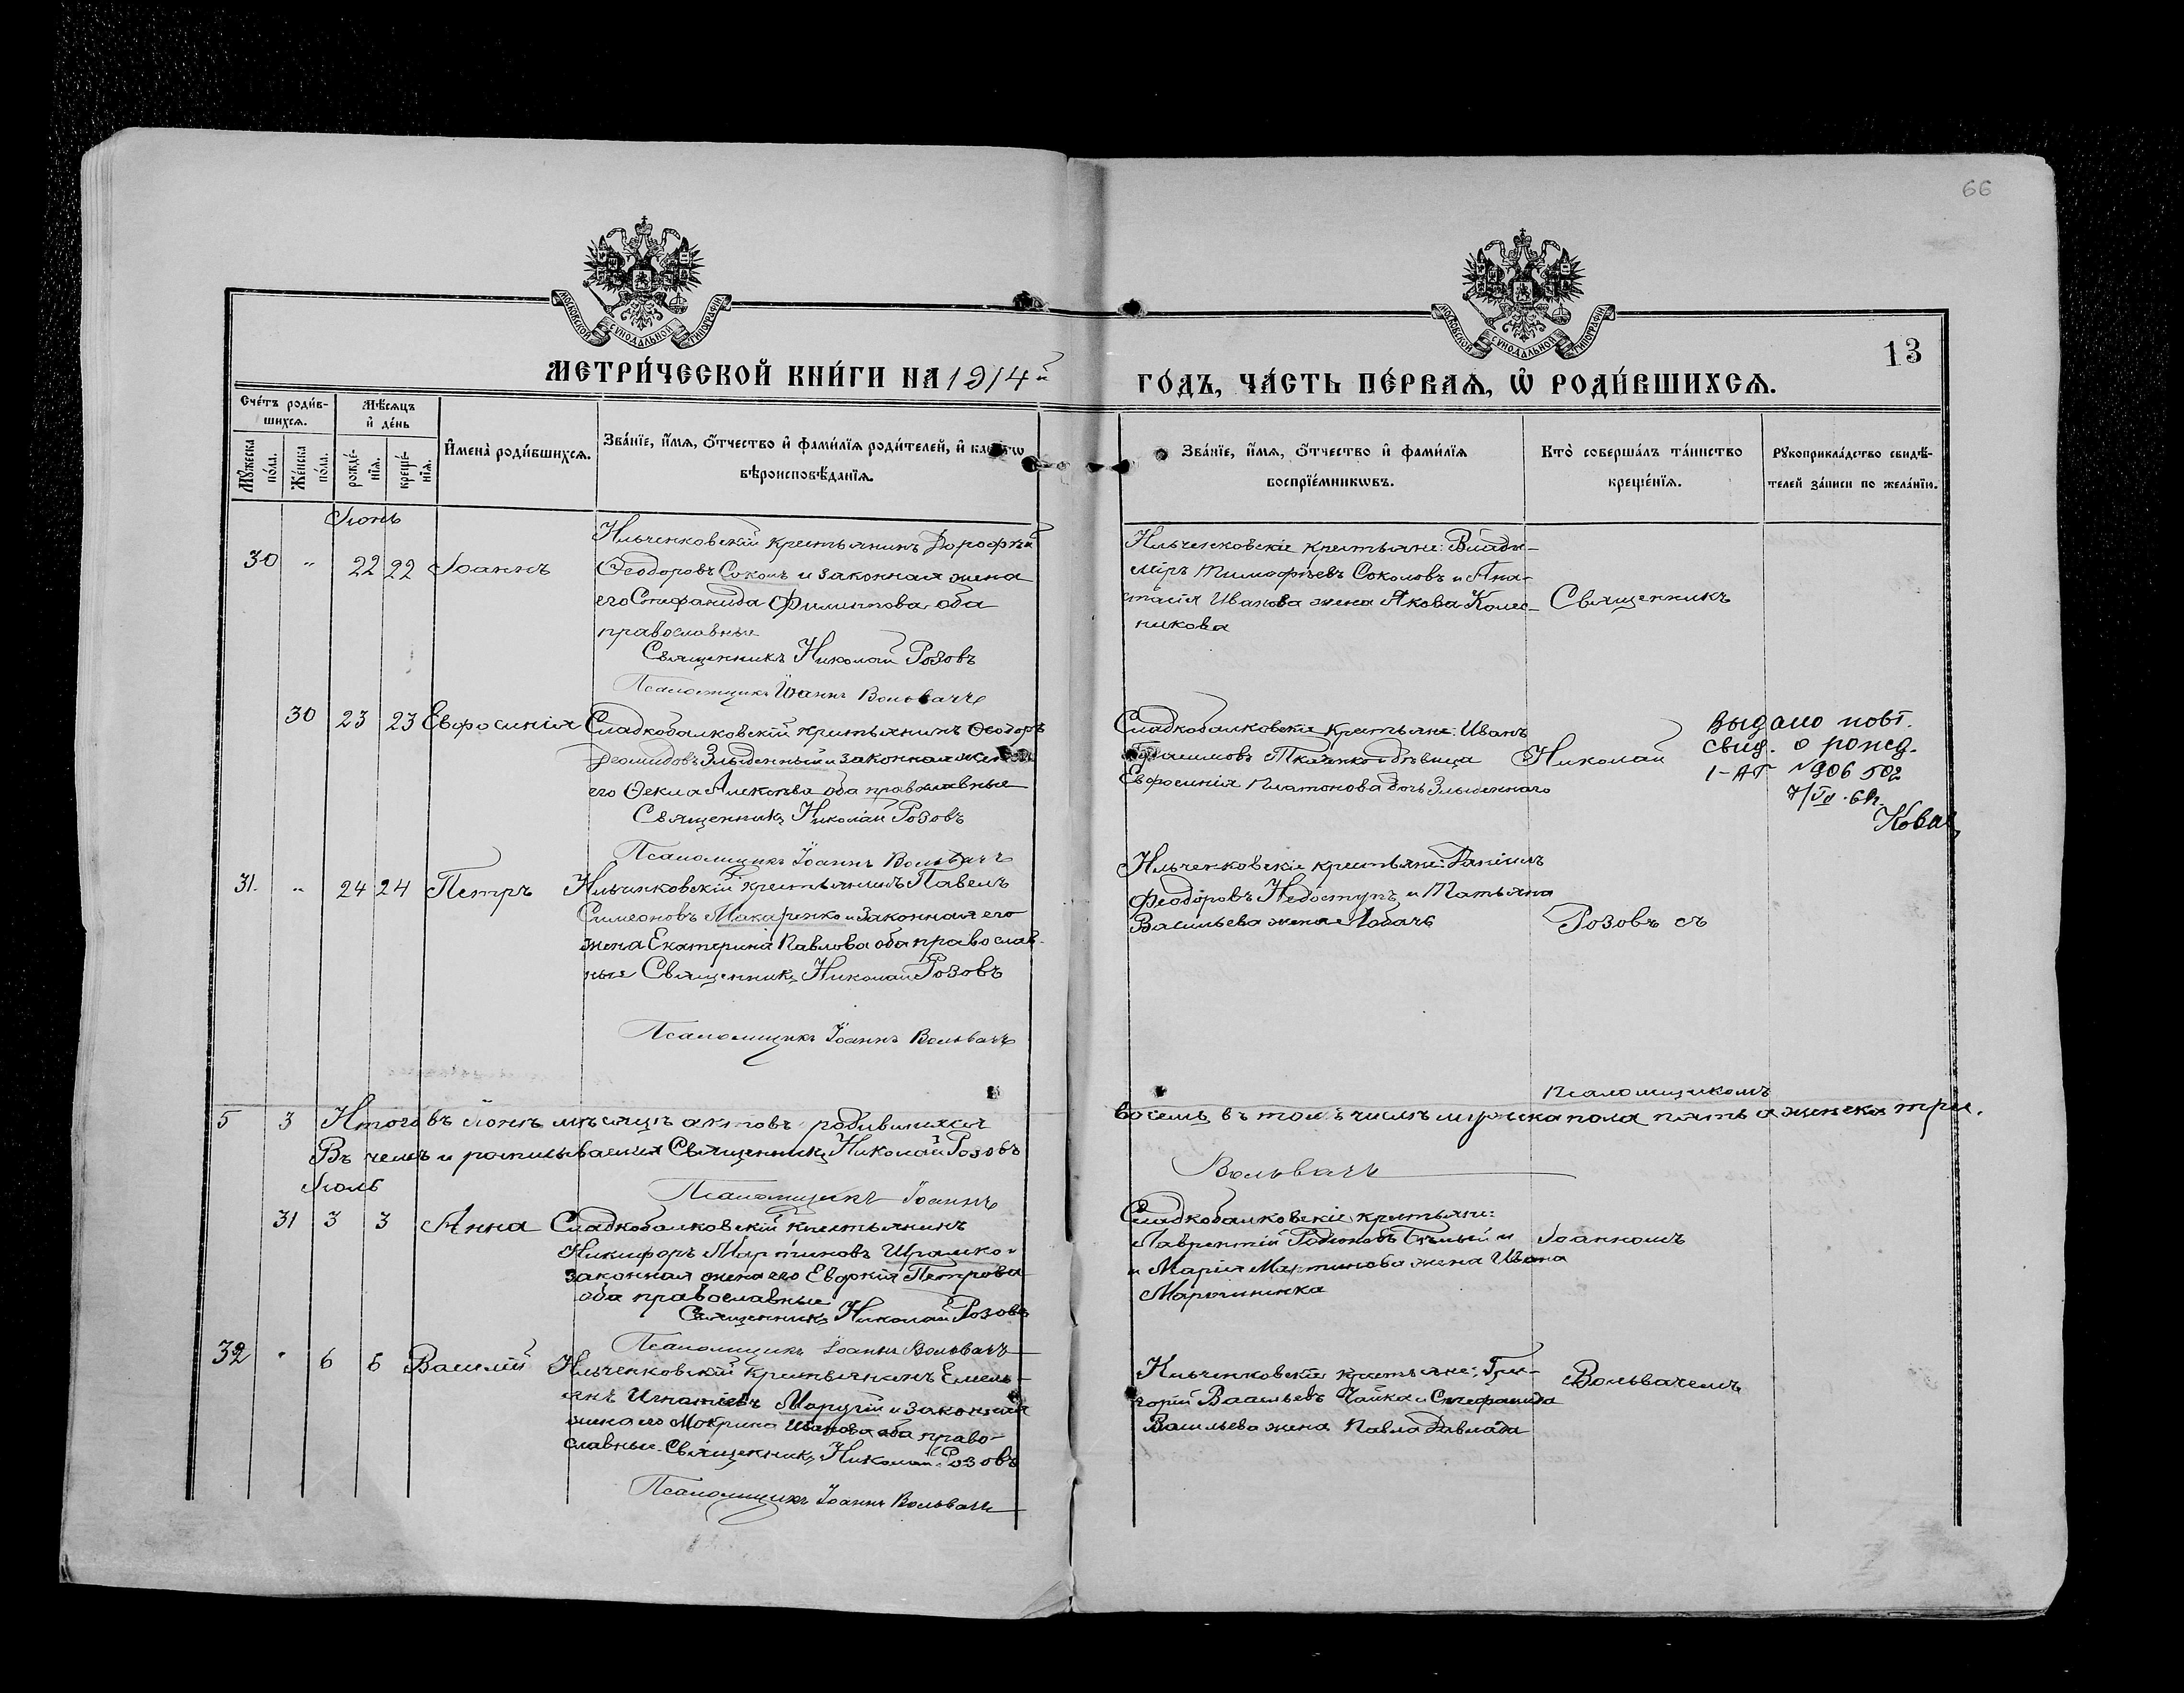 66
МОСКОВСКОЙ СѴНОДАЛЬНОЙ ТИПОГРАФІИ
МОСКОВСКОЙ СѴНОДАЛЬНОЙ ТИПОГРАФІИ
13
МЕТРИ́ЧЕСКОЙ КНИ́ГИ НА 1914й
ГО́ДЪ, ЧА́СТЬ ПЕ́РВАѦ, Ѡ҆ РОДИ́ВШИХСѦ.
Сче́тъ роди́в-
шихсѧ.
Мѣ́сѧцъ
и҆ де́нь
Мꙋ́жеска
по́ла.
Же́нска
по́ла.
рожде́-
нїѧ.
креще́-
нїѧ.
И҆мена̀ роди́вшихсѧ.
Зва́нїе, и҆́мѧ, ѻ҆́тчество и҆ фами́лїѧ роди́телей, и҆ какогѡ
вѣроисповѣ́данїѧ.
Зва́нїе, и҆́мѧ, ѻ҆́тчество и҆ фами́лїѧ
воспрїе́мникѡвъ.
Кто̀ соверша́лъ та́инство
креще́нїѧ.
Рꙋкоприкла́дство свидѣ́-
телей за́писи по жела́нїю.
Іюнь
30 " 22 22 Іоаннъ
Ильченковскій крестьянинъ Дорофѣй
Ѳеодоровъ Соколъ и законная жена
его Стефанида Филиппова оба
православные
Священникъ Николай Розовъ
Псаломщикъ Іоаннъ Вольвачъ
Ильченковскіе крестьяне: Влади-
міръ Тимофѣевъ Соколовъ и Ана-
стасія Иванова жена Якова Колес-
никова
Священникъ
30 23 23 Евфросинія
Сладкобалковскій крестьянинъ Ѳеодоръ
Деомидовъ Злыденный и законная жена
его Ѳекла Алексѣева оба православные
Священникъ Николай Розовъ
Псаломщикъ Іоаннъ Вольвачъ
Сладкобалковскіе крестьяне: Иванъ
Ткаченко и дѣвица
Евфросинія Платонова дочь Злыденнаго
Николай
Выдано повт.
свид. о рожд.
I-АГ №906502
Ковал
31. " 24 24 Петръ
Ильченковскій крестьянинъ Павелъ
Симеоновъ Макаренко и законная его
жена Екатерина Павлова оба православ-
ные Священникъ Николай Розовъ
Псаломщикъ Іоаннъ Вольвачъ
Ильченковскіе крестьяне: Даніилъ
Феодоровъ Недоступъ и Татьяна
Васильева жена Лобачъ
Розовъ съ
псаломщикомъ
5 3 Итого въ іюнѣ мѣсяцѣ актовъ родившихся
восемь въ томъ числѣ мужска пола пять а женска три.
Въ чемъ и росписываемся Священникъ Николай Розовъ
Псаломщикъ Іоаннъ
Вольвачъ
Іюль
31 3 3 Анна
Сладкобалковскій крестьянинъ
Никифоръ Мартиновъ Ирашко и
законная жена его Евдокія Петрова
оба православные
Священникъ Николай Розовъ
Псаломщикъ Іоаннъ Вольвачъ
Сладкобалковскіе крестьяне:
Лаврентій Родіоновъ Бѣлый и
и Марія Мартинова жена Ивана
Іоанномъ
32 " 6 6 Василій
Ильченковскій крестьянинъ Емель-
янъ Игнатіевъ Моругій и законная
жена его Мокрина Иванова оба право-
славные. Священникъ Николай Розовъ
Псаломщикъ Іоаннъ Вольвачъ
Ильченковскіе крестьяне: Гри-
горій Васильевъ Чайка и Стефанида
Васильева жена Павла Давлада
Вольвачемъ